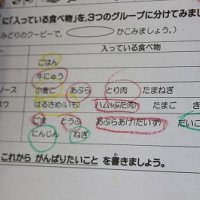 に「入っている食べ物」を、3つのグループに分けてみまし
みどりのクーピーで、 かこみましょう。)
入っている食べ物
ごはん
牛にゅう
ソース 小麦こ あぶら とり肉 たまねぎ
はるさめ(いも) ハム(ぶた肉) たまご き
とうふ あぶらあげ(だいず) だいこ
にんじん ねぎ
これから がんばりたいこと を書きましょう。